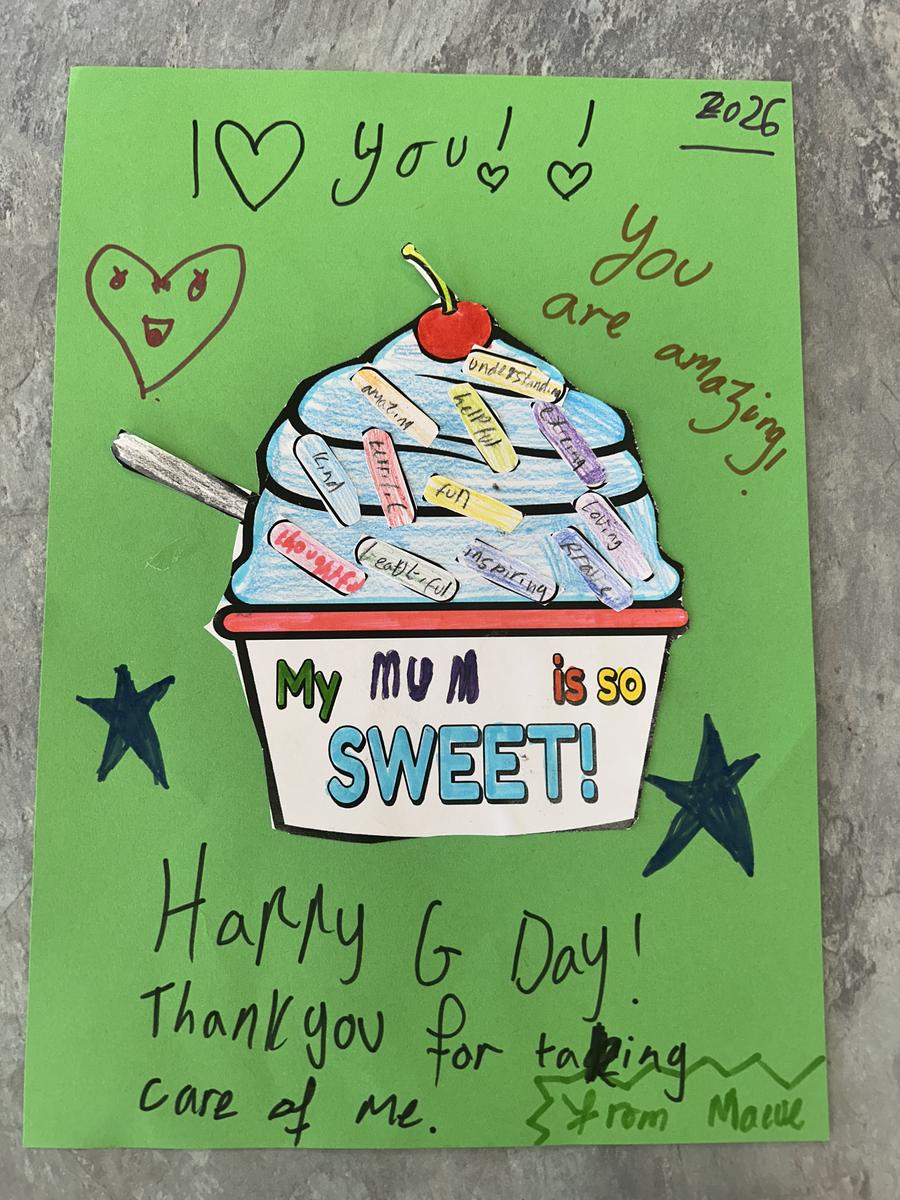 2026
I ♡ you!!
You
are
amazing!
understanding
amazin
helpful
kind
terrific
fun
loving
thoughtf
inspiring
My MUM is so
SWEET!
Happy G Day!
Thank you for taking
care of me.
from Maeve